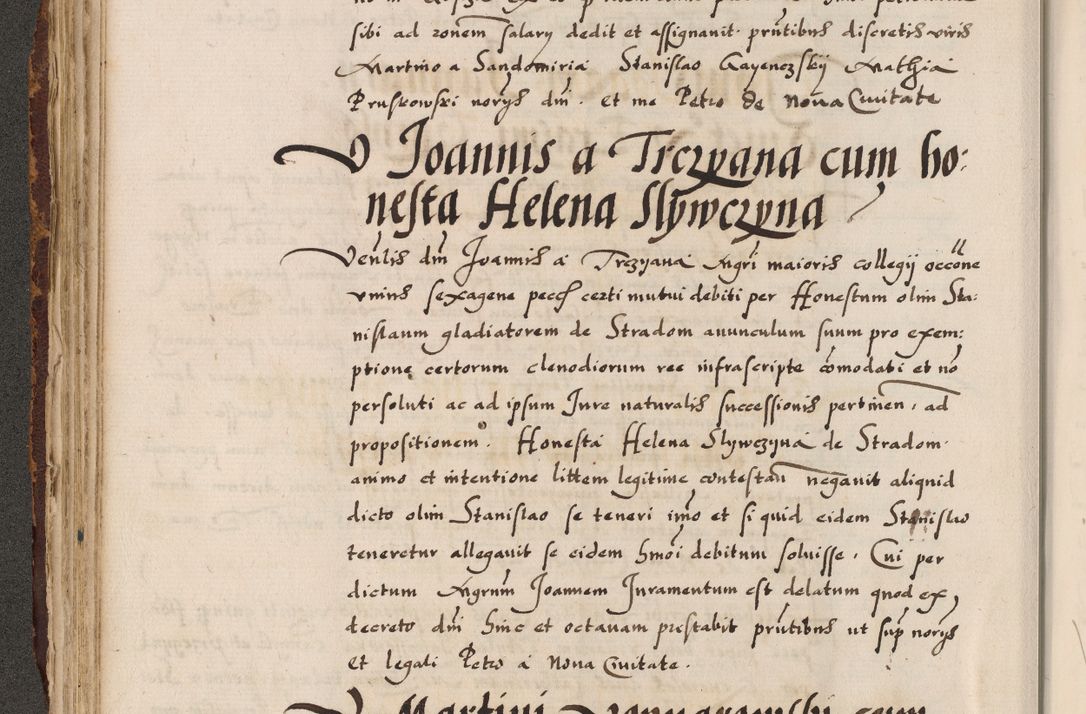 sibi ad ronem salary dedit et assignavit. prutibus discretis viris
Martino a Sandomiria Stanislao Gayenczskij Mathia
Pruskowski norys dni. et me Petro de Nova Civitate
V Joannis a Trczyana cum ho:
nesta Helena Slywczyna
Venlis dni Joannis a Trczyana Mgri maioris collegij occone
unius sexagene pecc certi mutui debiti per Honestum olim Sta:
nislaum gladiatorem de Stradom avunculum suum pro exem:
ptione certorum clenodiorum ree infrascripte comodati et no
persoluti ac ad ipsum Jure naturalis successionis pertinen. ad
propositionem. Honesta Helena Slywczyna de Stradom
animo et intentione littem legitime contestan negavit aliquid
dicto olim Stanislao se teneri imo et si quid eidem Stanislao
teneretur allegavit se eidem hmoi debitum solvisse. Cui per
dictum Mgrum Joannem Juramentum est delatum quod ex
decreto dni hinc et octavam prestabit prutibus ut sup norys
et legali Petro a Nova Civitate.
V Martini
cum